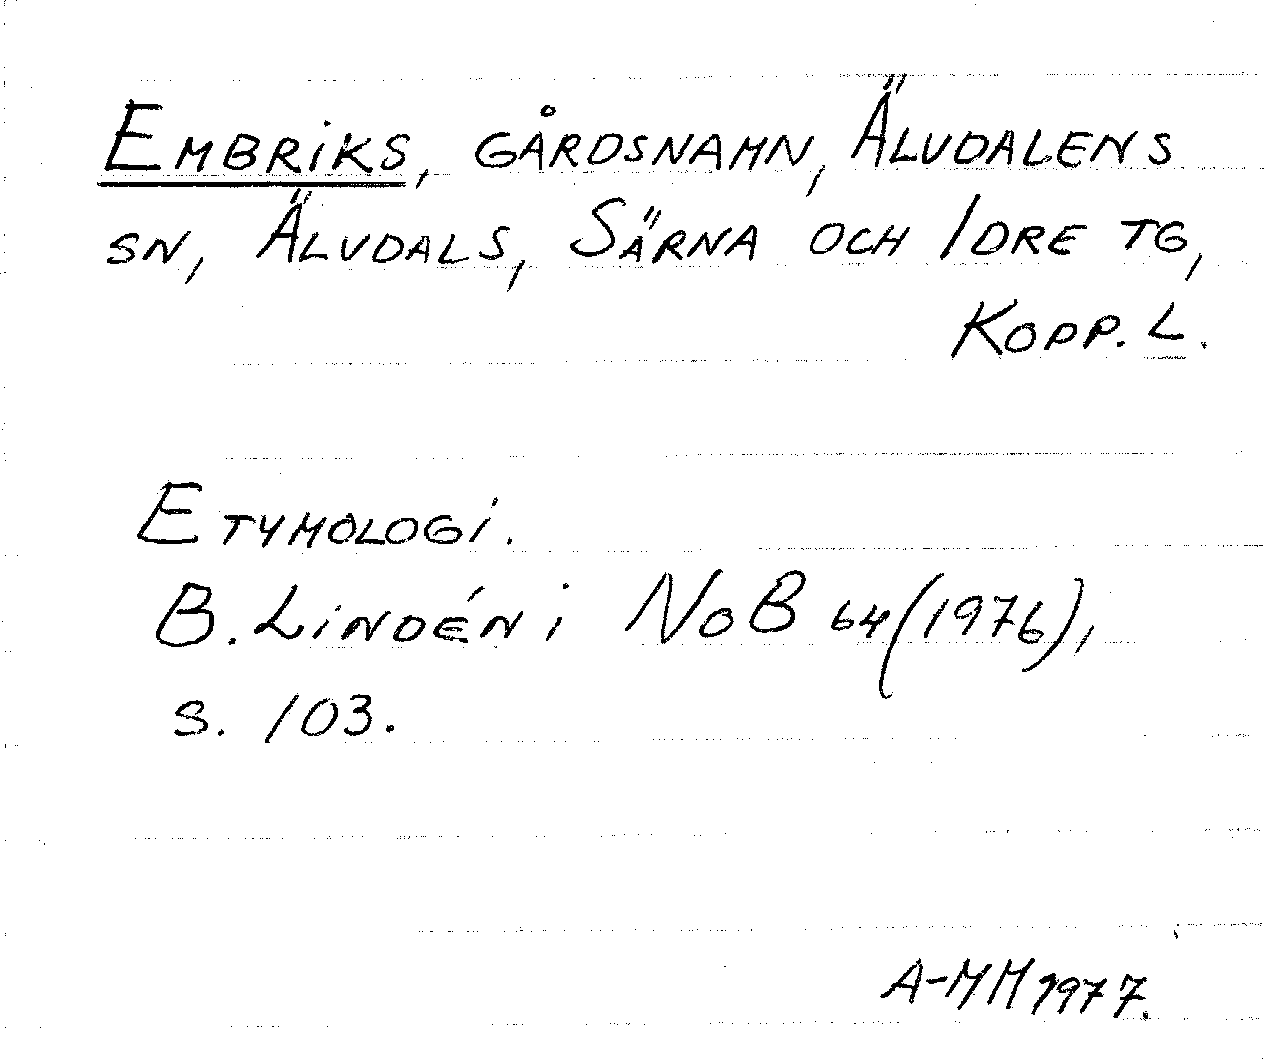 EMBRIKS, GÅRDSNAMN, ÄLVDALENS
SN, ÄLVDALS, SÄRNA OCH IDRE TG,
KOPP. L.
ETYMOLOGI.
B. LINDÉN i NoB 64 (1976),
S. 103.
A-MM 1977.